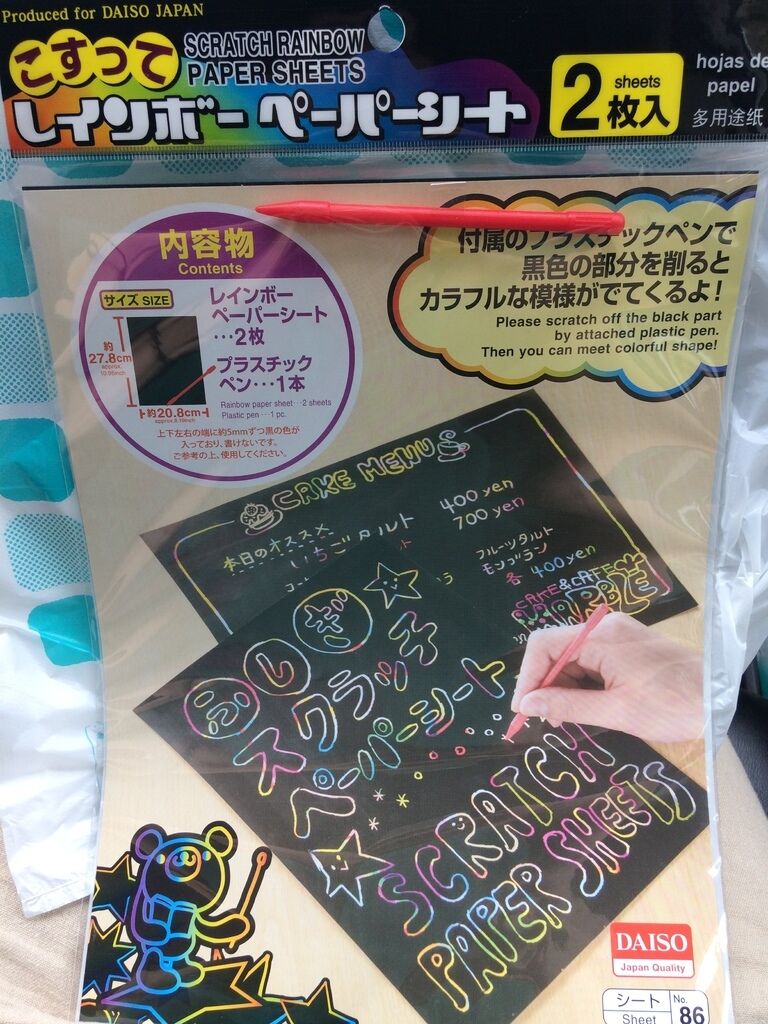 Produced for DAISO JAPAN
こすって
SCRATCH RAINBOW
PAPER SHEETS
レインボー ペーパーシート
2 sheets
枚入
hojas de
papel
多用途纸
内容物
Contents
サイズ SIZE
レインボー
ペーパーシート
…2枚
プラスチック
ペン…1本
Rainbow paper sheet…2 sheets
Plastic pen…1 pc.
約
27.8cm
approx.
10.95inch
約20.8cm
approx.8.19inch
上下左右の端に約5mmずつ黒の色が
入っており、書けないです。
ご参考の上、使用してください。
付属のプラスチックペンで
黒色の部分を削ると
カラフルな模様がでてくるよ!
Please scratch off the black part
by attached plastic pen.
Then you can meet colorful shape!
CAKE MENU
本日のオススメ
いちごタルト 400 yen
700 yen
フルーツタルト
モンブラン
各 400 yen
CAKE&CAFE
MARBLE
ふしぎ
スクラッチ
ペーパーシート
SCRATCH
PAPER SHEETS
DAISO
Japan Quality
シート
Sheet
No.
86